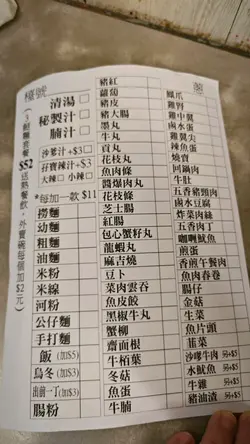 檯號
蔥
(3餸麵套餐$52送熱餐飲，外賣碗每個加$2元)
清湯
秘製汁
腩汁
沙爹汁+$3
孖寶辣汁+$3
大辣 小辣
*每加一款$11
撈麵
幼麵
粗麵
油麵
米粉
米線
河粉
公仔麵
手打麵
飯(加$5)
烏冬(加$3)
出前一丁(加$3)
腸粉
豬紅
蘿蔔
豬皮
豬大腸
墨丸
牛丸
貢丸
花枝丸
魚肉條
醬爆肉丸
花枝條
芝士腸
紅腸
包心蟹籽丸
龍蝦丸
麻吉燒
豆卜
菜肉雲吞
魚皮餃
黑椒牛丸
蟹柳
齋面根
牛柏葉
冬菇
魚蛋
牛腩
鳳爪
雞肾
雞中翼
鹵水蛋
雞翼尖
辣魚蛋
燒賣
回鍋肉
牛肚
五香豬頸肉
鹵水豆腐
炸菜肉絲
五香肉丁
咖喱魷魚
煎蛋
香煎午餐肉
魚肉春卷
腸仔
金菇
生菜
魚片頭
韮菜
沙嗲牛肉 另+$5
水魷魚 另+$5
牛雜 另+$5
豬油渣 另+$5